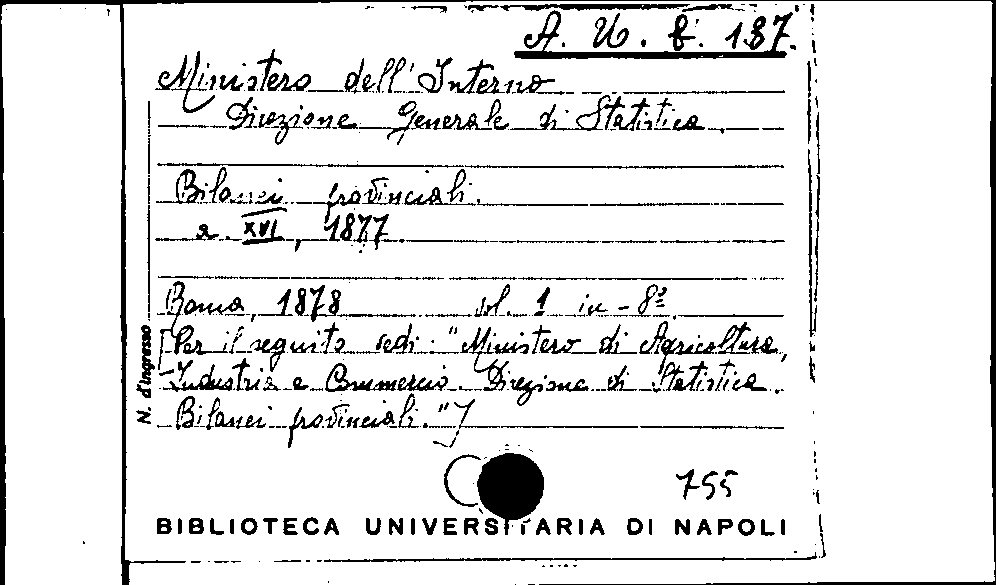 A. U. f. 187.
Ministero dell'Interno
Direzione Generale di Statistica.
Bilanci provinciali.
a. XVI, 1877.
Roma, 1878 vol. 1 in-8º.
[Per il seguito vedi: "Ministero di Agricoltura,
Industria e Commercio. Direzione di Statistica.
Bilanci provinciali."]
N. d'Ingresso
755
BIBLIOTECA UNIVERSITARIA DI NAPOLI